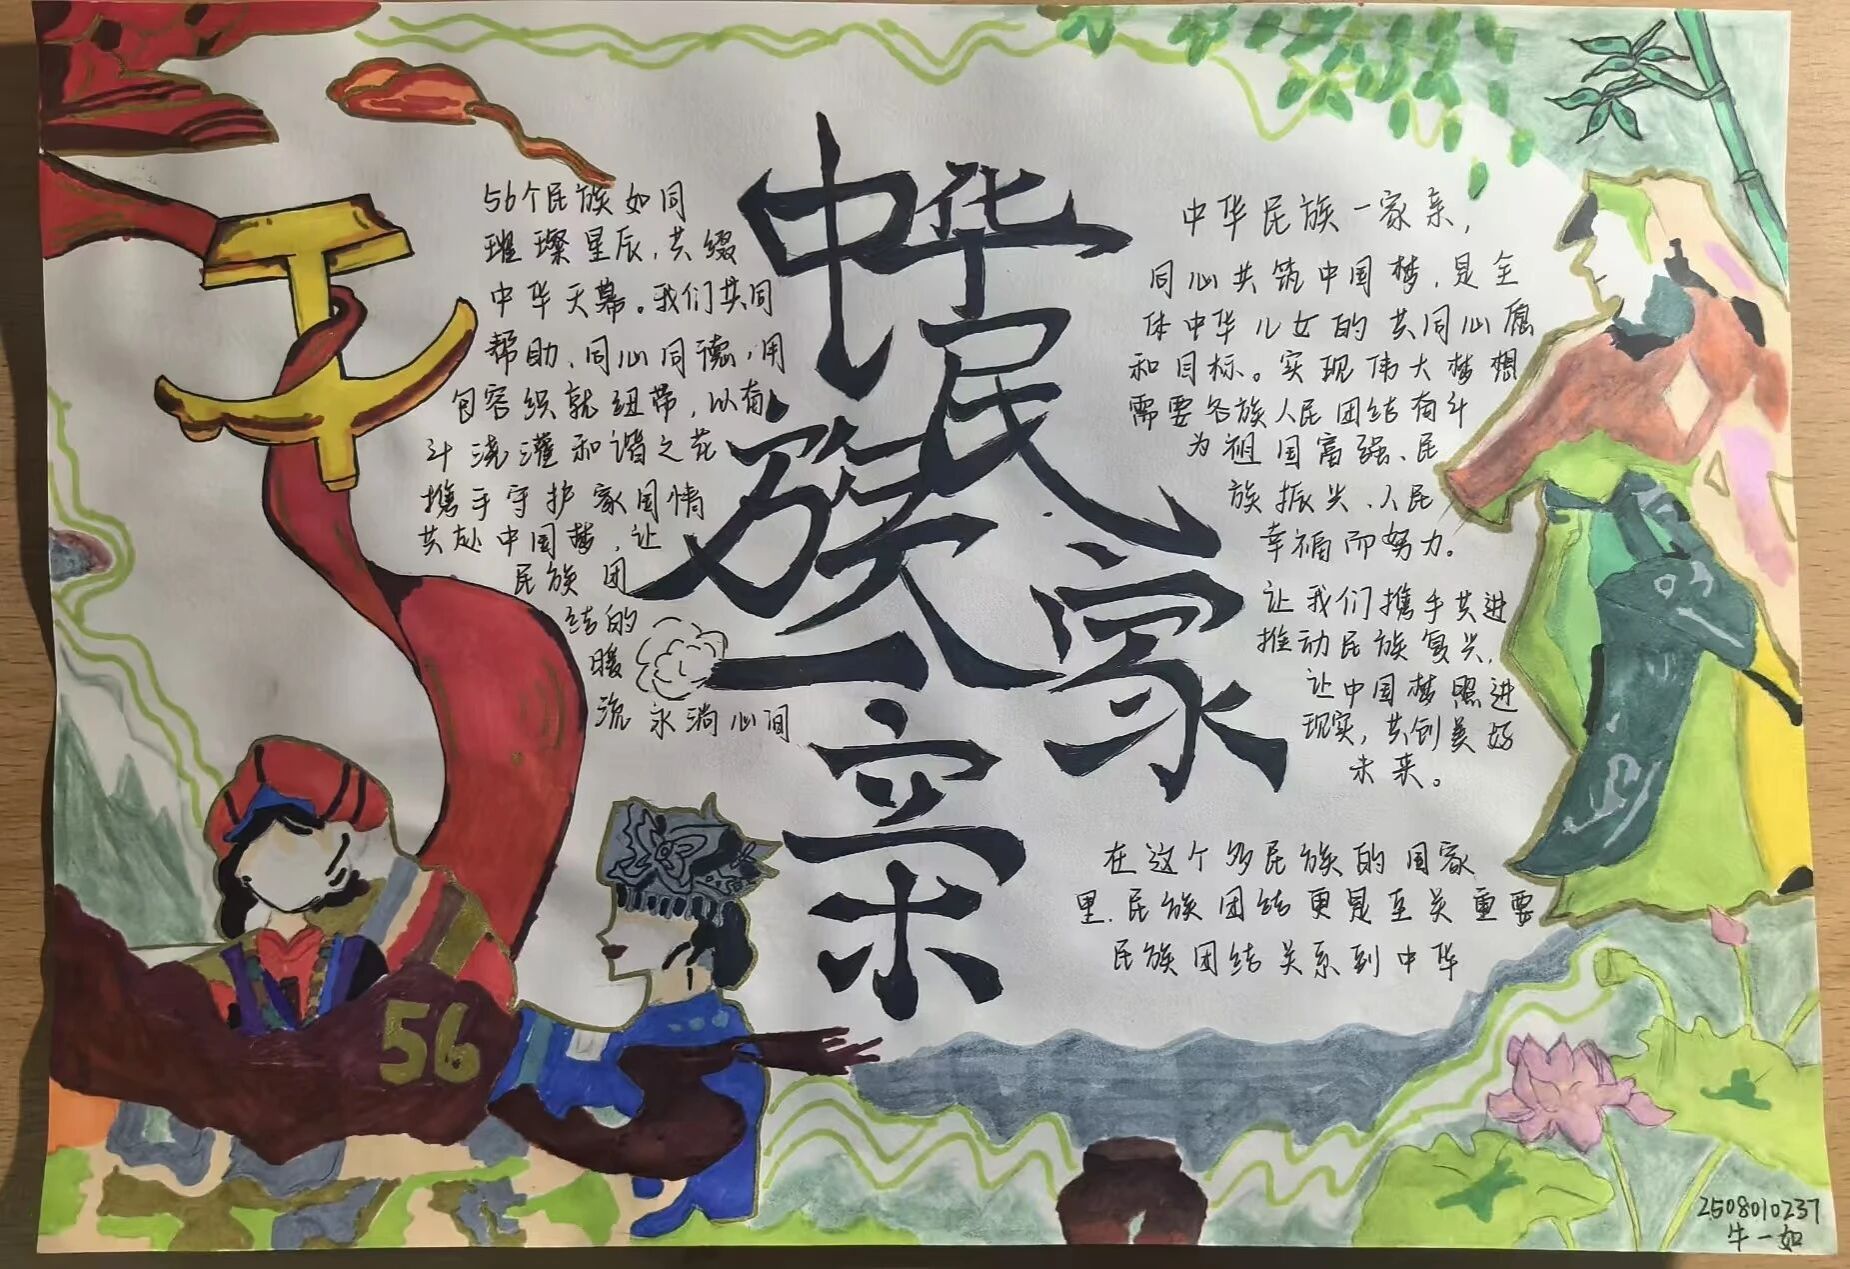 中华民族一家亲
56个民族如同
璀璨星辰，共缀
中华天幕。我们共同
帮助、同心同德，用
包容织就纽带，以奋
斗浇灌和谐之花
携手守护家国情
共赴中国梦，让
民族团
结的
暖
流永淌心间
中华民族一家亲，
同心共筑中国梦，是全
体中华儿女的共同心愿
和目标。实现伟大梦想
需要各族人民团结奋斗
为祖国富强、民
族振兴、人民
幸福而努力。
让我们携手共进
推动民族复兴，
让中国梦照进
现实，共创美好
未来。
在这个多民族的国家
里，民族团结更是至关重要
民族团结关系到中华
56
2508010237
牛一如